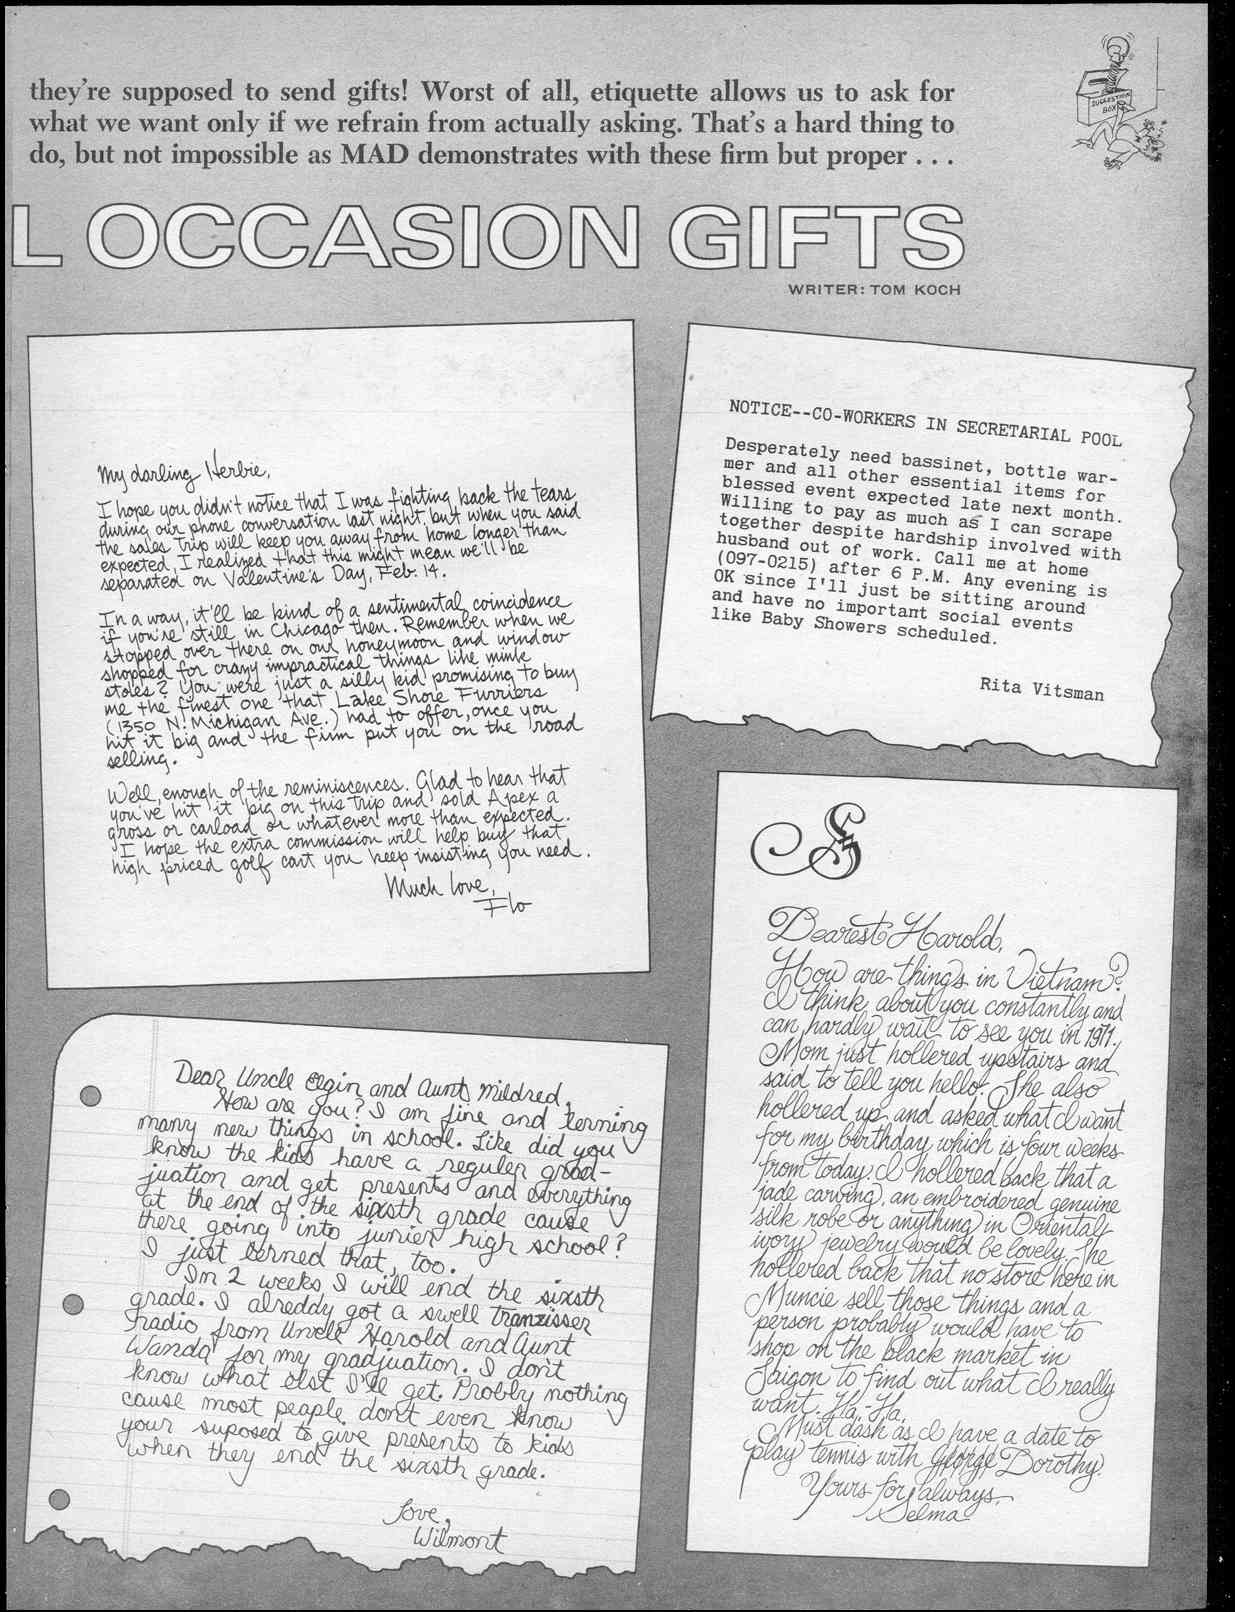 they're supposed to send gifts! Worst of all, etiquette allows us to ask for
what we want only if we refrain from actually asking. That's a hard thing to
do, but not impossible as MAD demonstrates with these firm but proper . . .
SUGGESTION
BOX
L OCCASION GIFTS
WRITER: TOM KOCH
My darling Herbie,
I hope you didn't notice that I was fighting back the tears
during our phone conversation last night, but when you said
the sales trip will keep you away from home longer than
expected, I realized that this might mean we'll be
separated on Valentine's Day, Feb. 14.
In a way, it'll be kind of a sentimental coincidence
if you're still in Chicago then. Remember when we
stopped over there on our honeymoon and window
shopped for crazy impractical things like mink
stoles? You were just a silly kid promising to buy
me the finest one that Lake Shore Furriers
(1350 N. Michigan Ave.) had to offer, once you
hit it big and the firm put you on the road
selling.
Well, enough of the reminiscences. Glad to hear that
you've hit it big on this trip and sold Apex a
gross or carload or whatever more than expected.
I hope the extra commission will help buy that
high priced golf cart you keep insisting you need.
Much love,
Flo
NOTICE--CO-WORKERS IN SECRETARIAL POOL
Desperately need bassinet, bottle war-
mer and all other essential items for
blessed event expected late next month.
Willing to pay as much as I can scrape
together despite hardship involved with
husband out of work. Call me at home
(097-0215) after 6 P.M. Any evening is
OK since I'll just be sitting around
and have no important social events
like Baby Showers scheduled.
Rita Vitsman
Dear Uncle Elgin and Aunt Mildred,
How are you? I am fine and lerning
many new things in school. Like did you
know the kids have a reguler grad-
juation and get presents and everything
at the end of the sixsth grade cause
there going into junier high school?
I just lerned that, too.
In 2 weeks I will end the sixsth
grade. I alreddy got a swell tranzisser
radio from Uncle Harold and Aunt
Wanda for my gradjuation. I don't
know what else I'll get. Probbly nothing
cause most peaple don't even know
your suposed to give presents to kids
when they end the sixsth grade.
Love,
Wilmont
S
Dearest Harold,
How are things in Vietnam?
I think about you constantly and
can hardly wait to see you in 1971.
Mom just hollered upstairs and
said to tell you hello. She also
hollered up and asked what I want
for my birthday which is four weeks
from today. I hollered back that a
jade carving, an embroidered genuine
silk robe or anything in Oriental
ivory jewelry would be lovely. She
hollered back that no store here in
Muncie sell those things and a
person probably would have to
shop on the black market in
Saigon to find out what I really
want. Ha, Ha.
Must dash as I have a date to
play tennis with George Dorothy.
Yours for always,
Selma